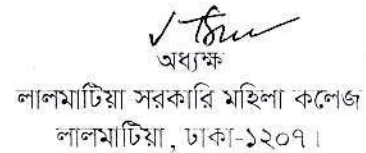 অধ্যক্ষ
লালমাটিয়া সরকারি মহিলা কলেজ
লালমাটিয়া, ঢাকা-১২০৭।